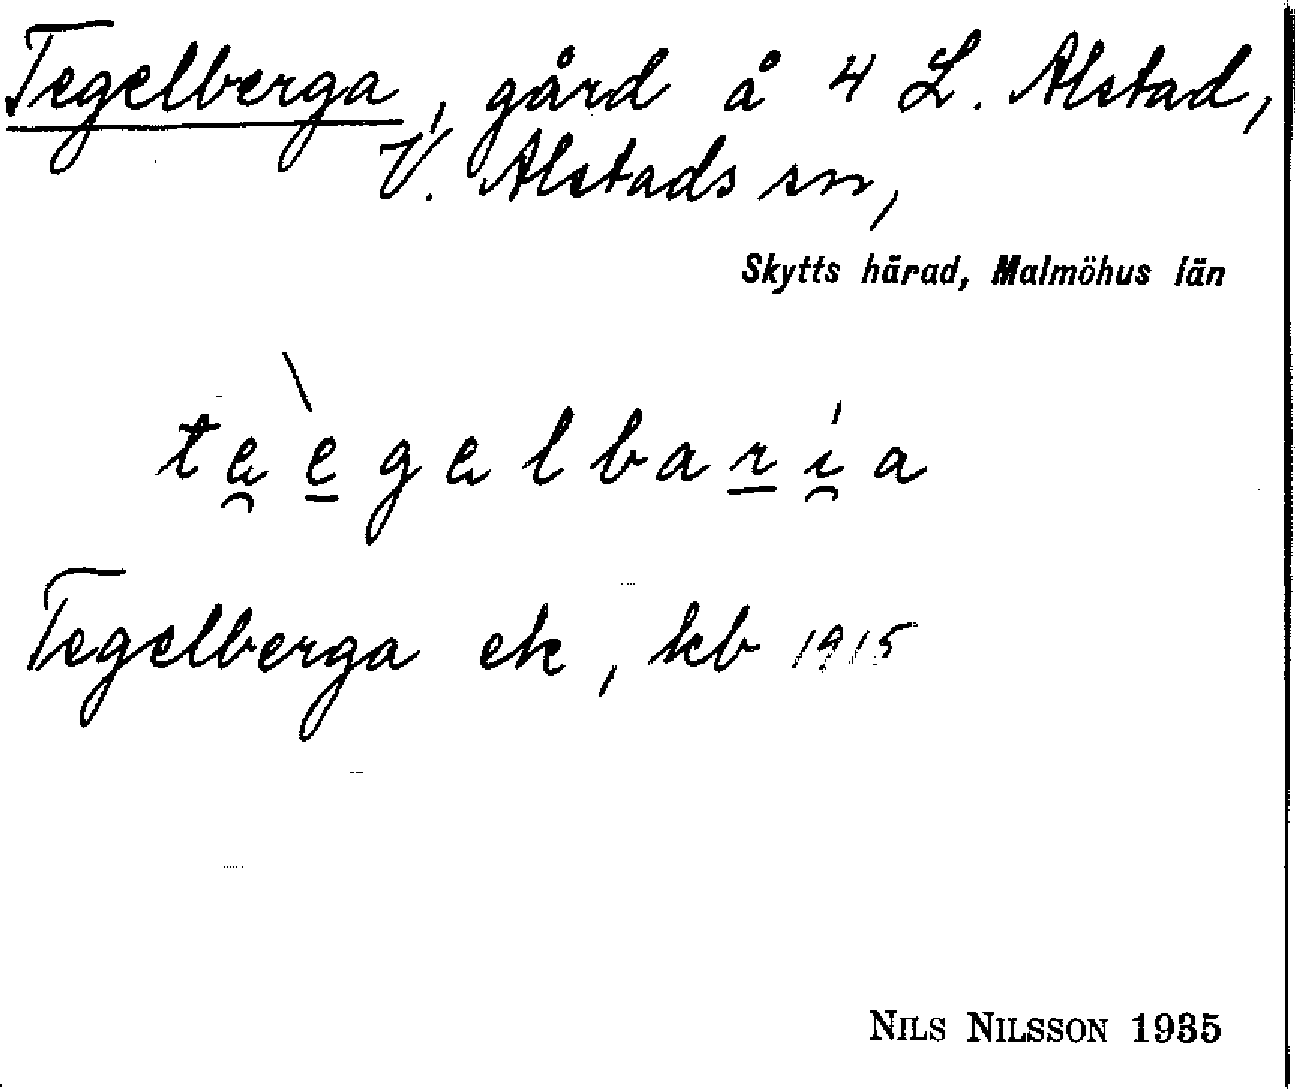 Tegelberga, gård å 4 L. Alstad,
V. Alstads sn,
Skytts härad, Malmöhus län
te̯èg​elbaria
Tegelberga ek, kb 1915
NILS NILSSON 1935